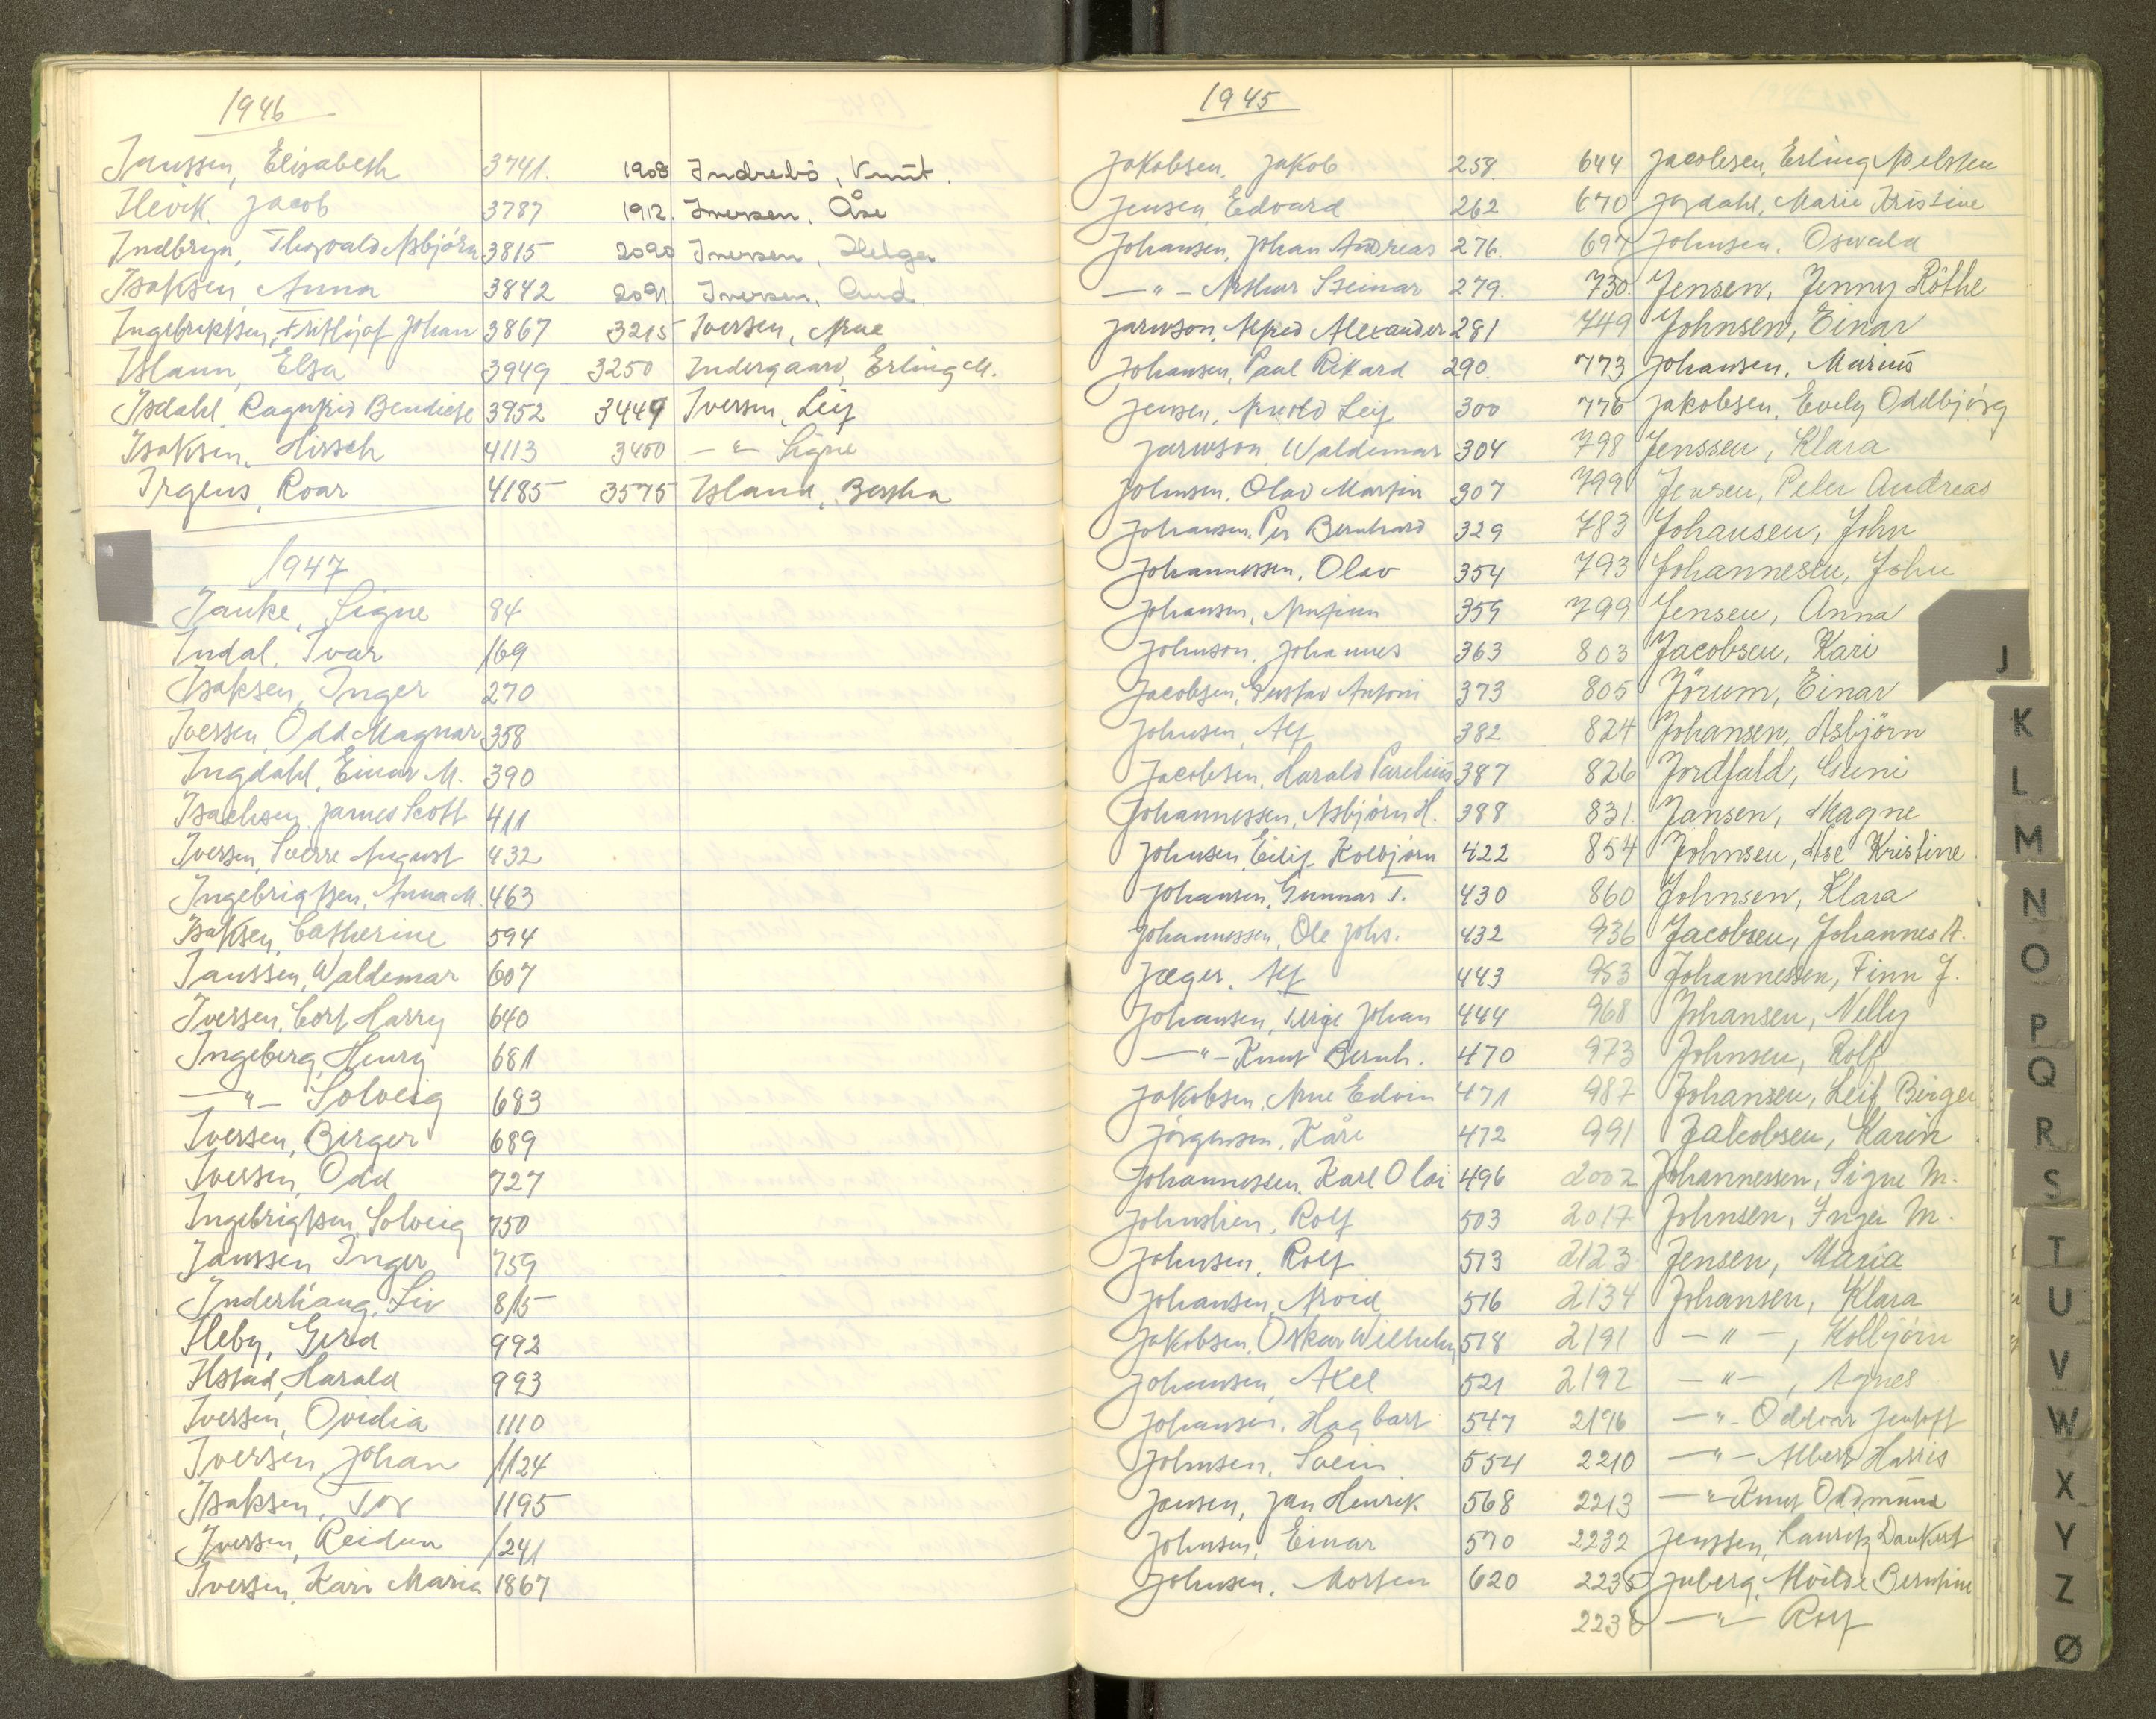 1946
Janssen, Elisabeth 3741.
Ilevik, Jacob 3787
Indbryn, Thorvald Asbjörn 3815
Isaksen, Anna 3842
Ingebriktsen, Frithjof Johan 3867
Island, Elsa 3949
Isdahl, Ragnfrid Bendicte 3952
Isaksen, Hirsch 4113
Irgens, Roar 4185
1908 Indrebö, Knut.
1912. Iversen, Åse
2090 Iversen, Helga
2091 Iversen, Aud.
3215 Iversen, Arne
3250 Indergaard, Erling M.
3449 Iversen, Leif
3450 —"— Signe
3575 Island, Bertha
1947
Janke, Signe 84
Indal, Ivar 169
Isaksen, Inger 270
Iversen, Odd Magnar 358
Ingdahl, Einar M. 390
Isachsen, James Scott 411
Iversen, Sverre August 432
Ingebrigtsen, Anna M. 463
Isaksen, Catherine 594
Janssen, Waldemar 607
Iversen, Cort Harry 640
Ingeberg, Henry 681
—"— Solveig 683
Iversen, Birger 689
Iversen, Odd 727
Ingebrigtsen, Solveig 750
Janssen, Inger 759
Inderhaug, Liv 815
Ileby, Gerd 992
Ilstad, Harald 993
Iversen, Ovidia 1110
Iversen, Johan 1124
Isaksen, Tor 1195
Iversen, Reidun 1241
Iversen, Kari Maria 1867
1945
Jakobsen, Jakob 258.
Jensen, Edvard 262
Johansen, Johan Andreas 276.
—"— Arthur Steinar 279.
Jarwson, Alfred Alexander 281
Johansen, Paul Rikard 290.
Jensen, Arnold Leif 300
Jarwson, Waldemar 304
Johnsen, Olav Martin 307
Johansen, Per Bernhard 329
Johannessen, Olav 354
Johansen, Arnfinn 359
Johnson, Johannes 363
Jacobsen, Gustav Antoni 373
Johnsen, Alf 382
Jacobsen, Harald Parelius 387
Johannessen, Asbjörn H. 388
Johnsen, Eilif Kolbjörn 422
Johansen, Gunnar T. 430
Johannessen, Ole Johs. 432
Jæger, Alf 443
Johansen, Terje Johan 444
—"— Knut Bernh. 470
Jakobsen, Arne Edvin 471
Jörgensen, Kåre 472
Johannessen, Karl Olai 496
Johnslien, Rolf 503
Johnsen, Rolf 513
Johansen, Arvid 516
Jakobsen, Oskar Wilhelm 518
Johansen, Axel 521
Johansen, Hagbart 547
Johnsen, Svein 554
Jansen, Jan Henrik 568
Johnsen, Einar 570
Johnsen, Morten 620
644 Jacobsen, Erling Adelsten
670 Jagdahl, Marie Kristine
697 Johnsen, Osvald
730. Jensen, Jenny Röthe
749 Johnsen, Einar
773 Johansen, Marius
776 Jakobsen, Evely Oddbjörg
798 Jenssen, Klara
799 Jensen, Peter Andreas
783 Johansen, John
793 Johannesen, John
799 Jensen, Anna
803 Jacobsen, Kari
805 Jörum, Einar
824 Johansen, Asbjörn
826 Jordfald, Guni
831. Jansen, Magne
854 Johnsen, Åse Kristine
860 Johnsen, Klara
936 Jacobsen, Johannes A.
953 Johannessen, Finn J.
968 Johansen, Nelly
973 Johnsen, Rolf
987 Johansen, Leif Birger
991 Jakobsen, Karin
2002 Johannessen, Signe M.
2017 Johnsen, Inger M.
2123 Jensen, Maria
2134 Johansen, Klara
2191 —"—, Kolbjörn
2192 —"—, Agnes
2196 —"— Oddvar Jentoft
2210 —"— Albert Harris
2213 —"— Knut Oddmund
2232 Jenssen, Lauritz Dankert
2235 Juberg, Möilde Berntine
2236 —"— Rolf
J
K
L
M
N
O
P
Q
R
S
T
U
V
W
X
Y
Z
Ø